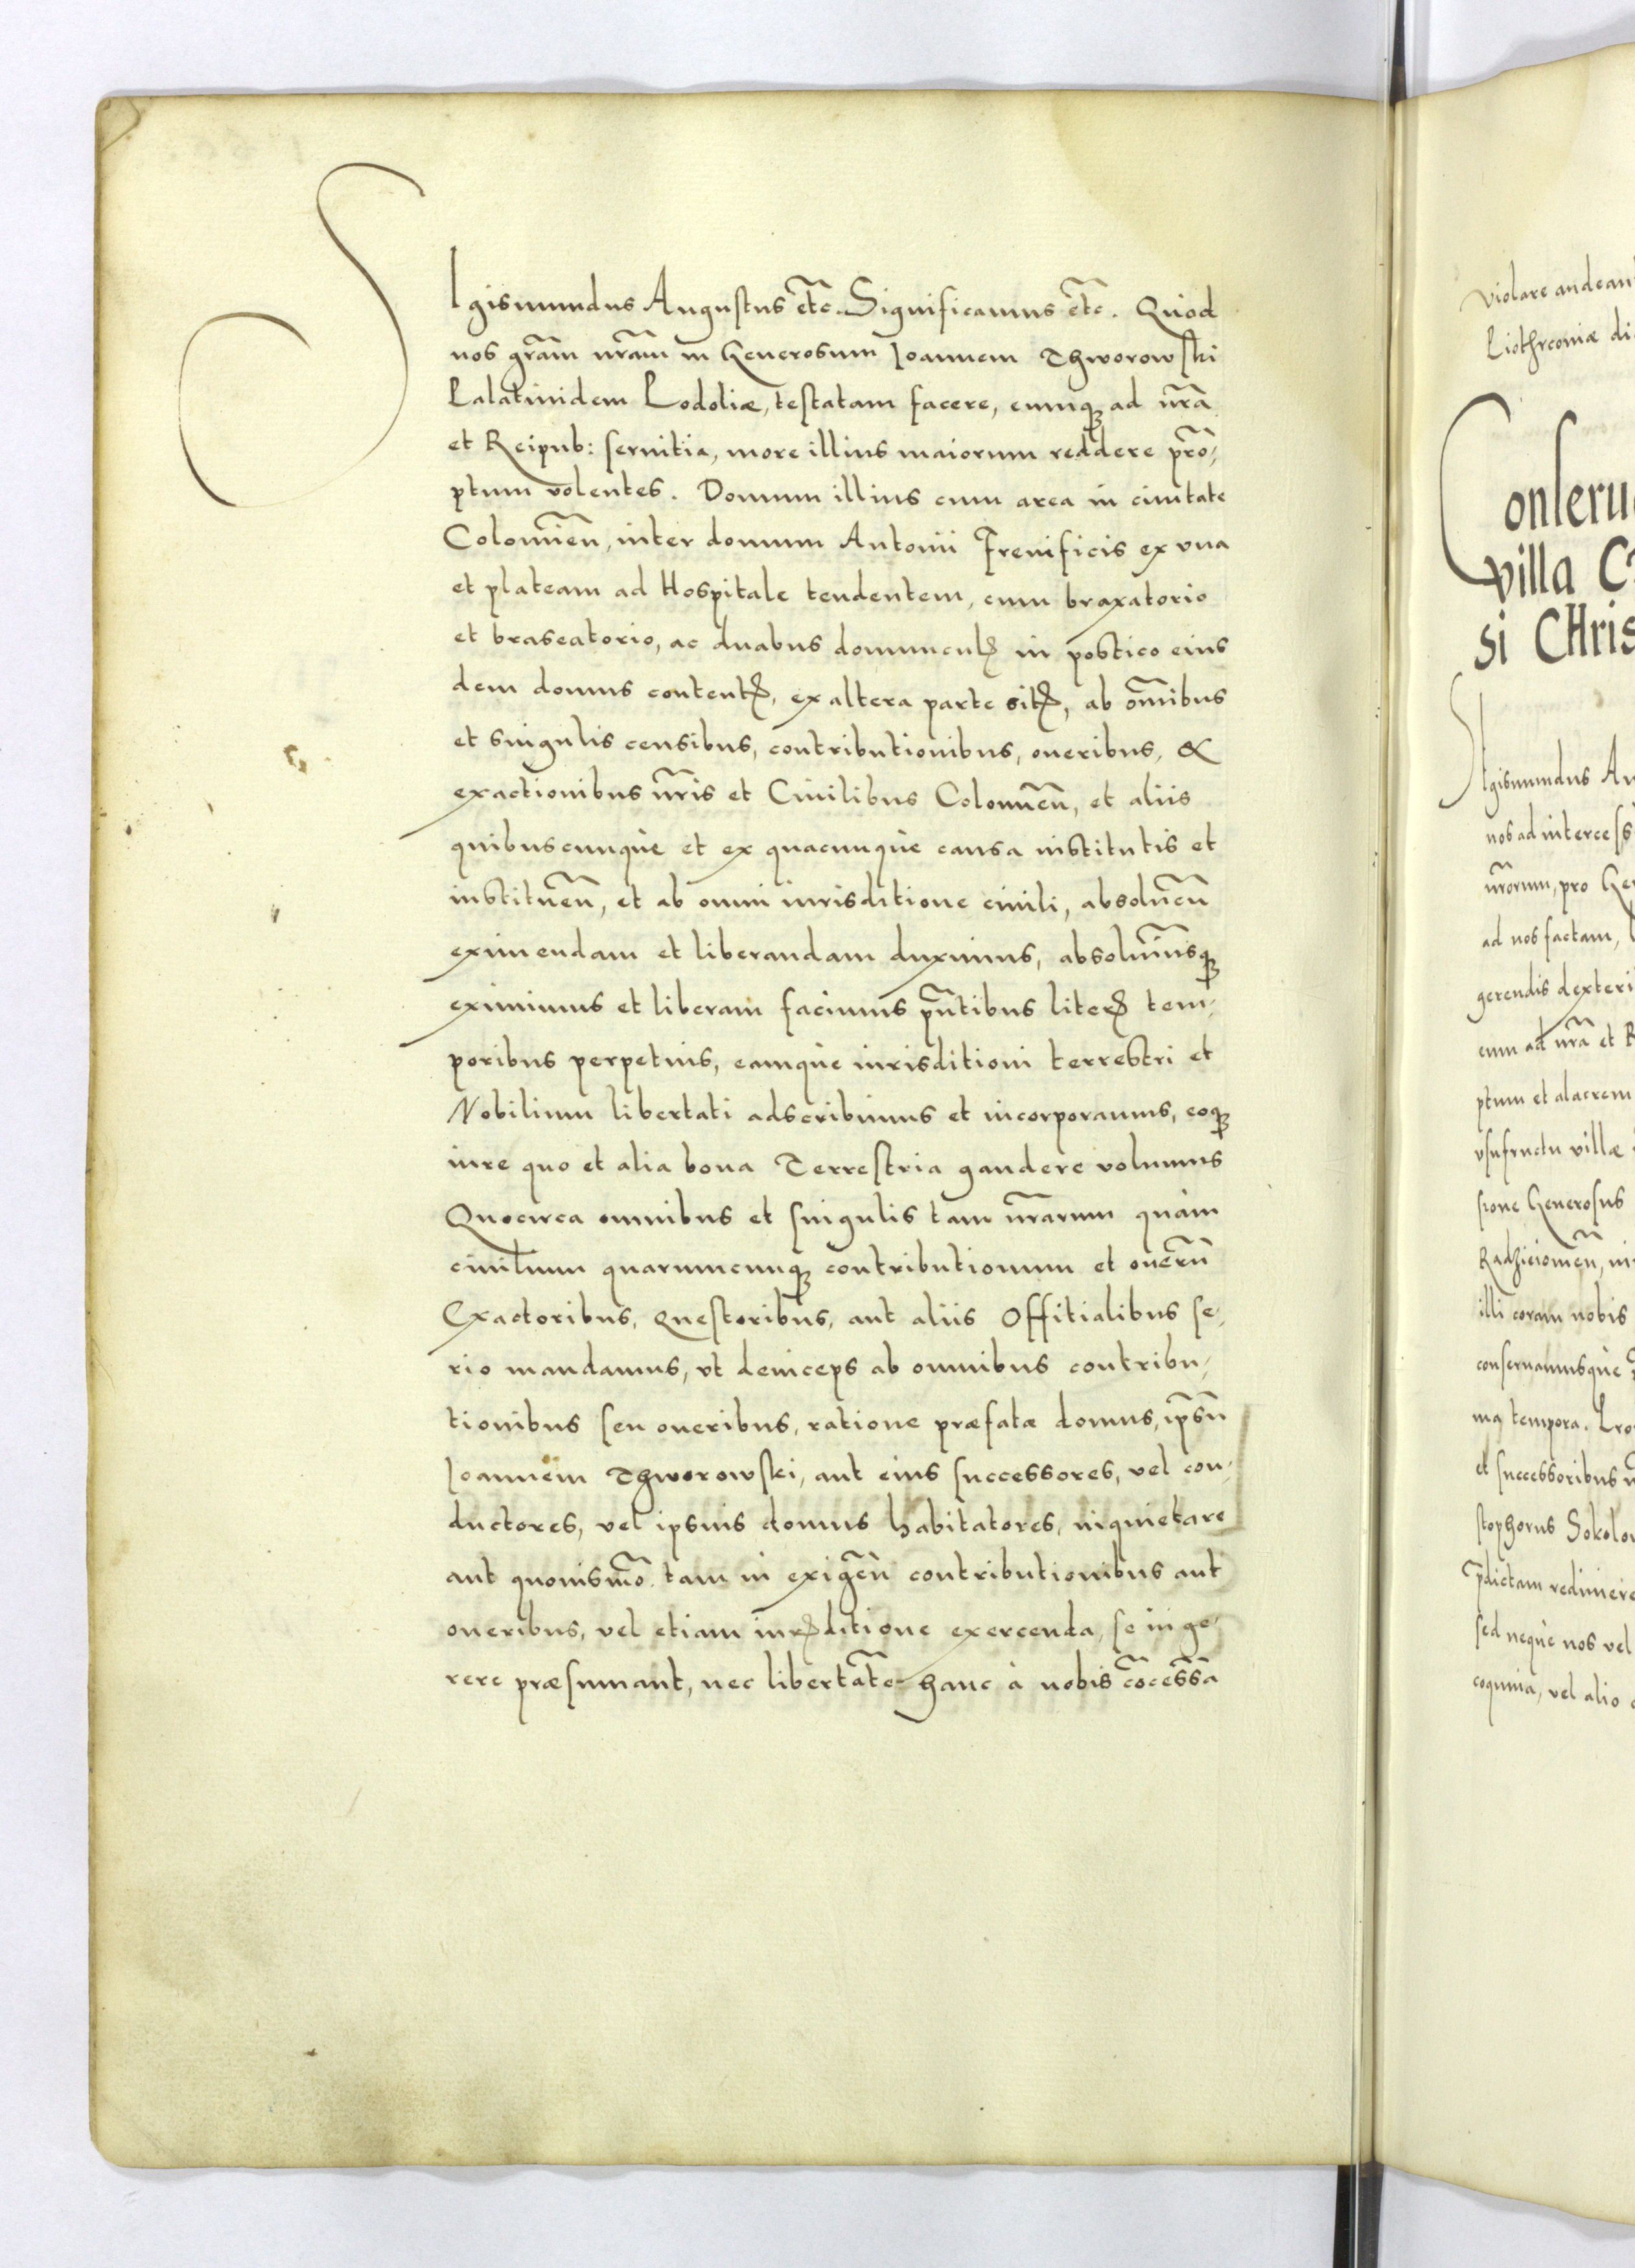 SIgismundus Augustus etc̃. Significamus etc̃. Quòd
nos grãm nr̃am in Generosum Ioannem Thworowski
Palatinidem Podoliæ, testatam facere, eumq; ad nr̃a
et Reipub: seruitia, more illius maiorum reddere prõ,
ptum volentes. Domum illius cum area in ciuitate
Colomieñ, inter domum Antonii Frenificis ex vna
et plateam ad Hospitale tendentem, cum braxatorio
et braseatorio, ac duabus domunculꝭ in postico eius
dem domus contentꝭ, ex altera parte sitꝭ, ab om̃ibus
et singulis censibus, contributionibus, oneribus, &
exactionibus nr̃is et Ciuilibus Colomieñ, et aliis
quibuscunquè et ex quacunquè causa institutis et
instituẽn, et ab omni iurisditione ciuili, absoluẽn
eximendam et liberandam duximus, absoluim̃usq;
eximimus et liberam facimus pñtibus literꝭ tem,
poribus perpetuis, eamquè iurisditioni terrestri et
Nobilium libertati adscribimus et incorporamus, eoq;
iure quo et alia bona Terrestria gaudere volumus
Quocirca omnibus et singulis tam nr̃arum quàm
ciuilium quarumcunq; contributionum et onerũ
Exactoribus, Questoribus, aut aliis Offitialibus se,
rio mandamus, vt deinceps ab omnibus contribu,
tionibus seu oneribus, ratione præfatæ domus, ipsũ
Ioannem Thworowski, aut eius successores, vel con,
ductores, vel ipsius domus habitatores, inquietare
aut quouismõ tam in exigẽn contributionibus aut
oneribus, vel etiam iurꝭditione exercenda, se inge,
rere præsumant, nec libertatẽ hanc à nobis cõcessã
violare audeant
Piothrconiæ di
Conseru
villa C
si CHris
SIgismundus Au
nos ad intercess
nr̃orum, pro Ge
ad nos factam,
gerendis dexteri
eum ad nr̃a et R
ptum et alacrem
vsufructu villæ
sione Generosus
illi coram nobis
conseruamusquè
mq tempora. Pro
et successoribus
stophorus Sokolo
p̃dictam redimere
sed nequè nos vel
coquinia, vel alio